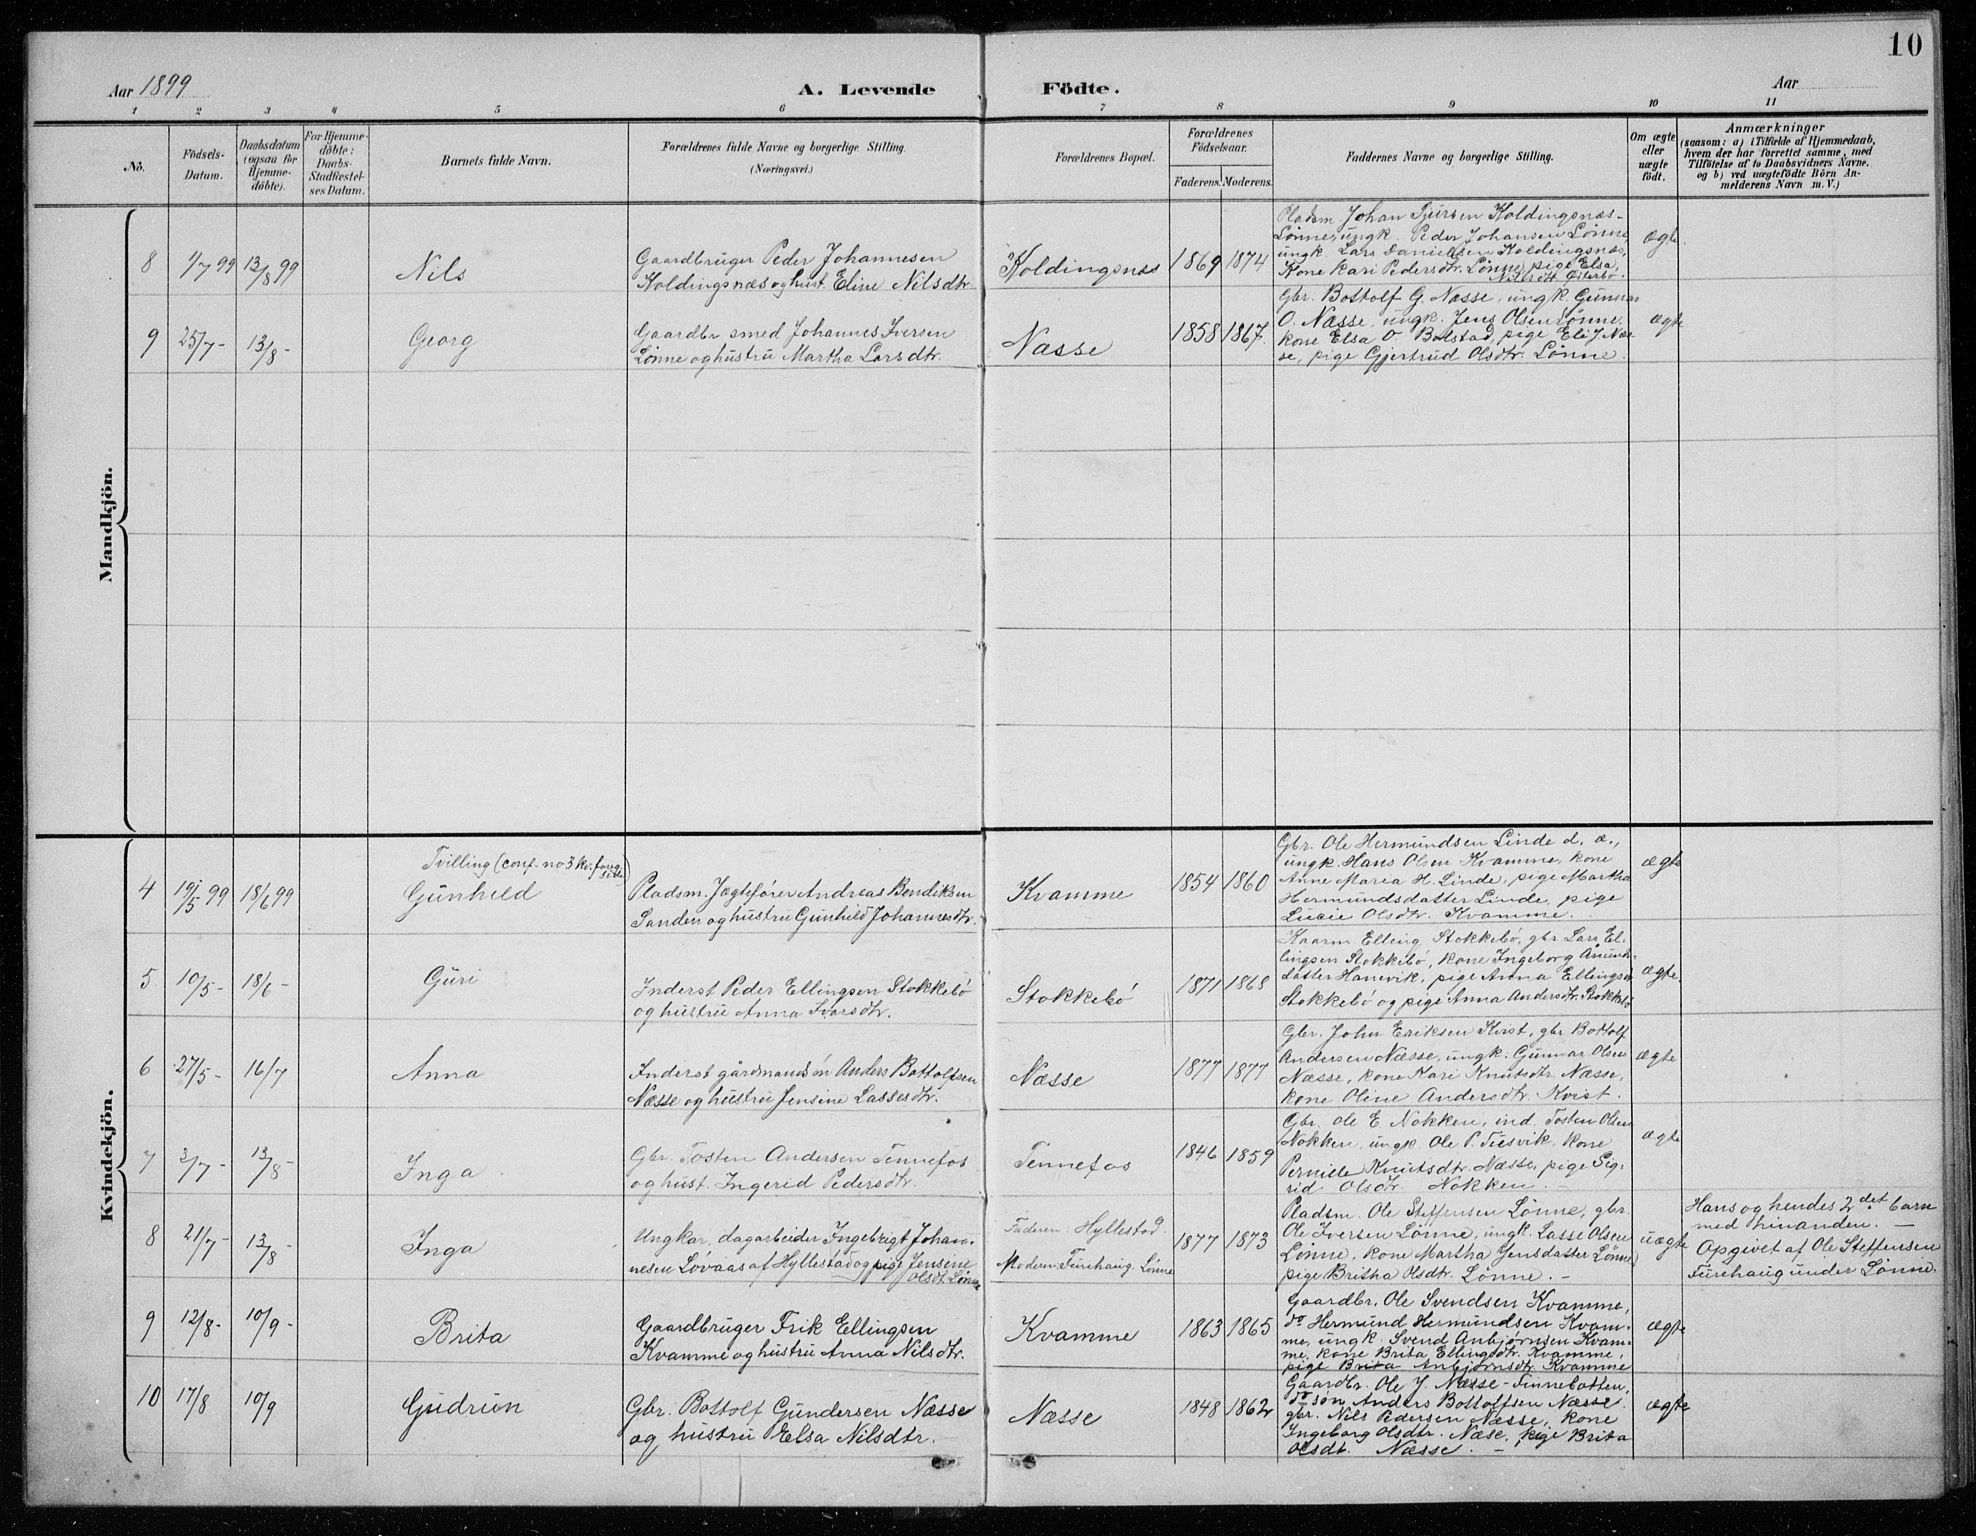 10
Aar 1899
A. Levende Födte.
Aar
1 2 3 4 5 6 7 8 9 10 11
Nö.
Födsels-
Datum.
Daabsdatum
(ogsaa för
Hjemme-
döbte).
For Hjemme-
döbte:
Daabs-
Stadfæstel-
ses Datum.
Barnets fulde Navn.
Forældrenes fulde Navne og borgerlige Stilling.
(Næringsvei.)
Forældrenes Bopæl.
Forældrenes
Födselsaar.
Faderens. Moderens.
Faddernes Navne og borgerlige Stilling.
Om ægte
eller
uægte
födt.
Anmærkninger
(saasom: a) i Tilfælde af Hjemmedaab,
hvem der har forrettet samme, med
Tilföielse af to Daabsvidners Navne.
og b) ved uægtefödte Börn An-
melderens Navn m. V.)
Mandkjön.
8 1/7 99 13/8 99 Nils
Gaardbruger Peder Johannesen
Koldingsnæs og hust. Eline Nilsdtr.
Koldingsnæs 1869 1874
Pladsm. Johan Tjursen Koldingsnæs-
Lønne, ungk. Peder Johansen Lønne,
ungk. Lars Danielsen Koldingsnæs,
Kone Kari Pedersdtr. Lønne, pige Elsa
Nilsdtr. Østerbø.
ægte
9 25/7- 13/8- Georg
Gaardbr smed Johannes Iversen
Lønne og hustru Martha Larsdtr.
Næsse 1858 1867.
Gbr. Bottolf G. Næsse, ungk. Gunnar
O. Næsse, ungk. Jens Olsen Lønne,
kone Elsa O. Bolstad, pige Eli J Næs-
se, pige Gjertrud Olsdtr. Lønne.
ægte
Kvindekjön.
4 19/5 99 18/6 99
Tvilling (conf. no 3 kv. forrg.
side)
Gunhild
Pladsm. Jægtefører Andreas Bendiksen
Sanden og hustru Gunhild Johannesdtr.
Kvamme 1854 1860
Gbr. Ole Hermundsen Linde d. æ.,
ungk. Hans Olsen Kvamme, kone
Anne Maria H. Linde, pige Martha
Hermundsdatter Linde, pige
Lucie Olsdtr. Kvamme.
ægte
5 10/5- 18/6- Guri
Inderst Peder Ellingsen Stokkebø
og hustru Anna Ivarsdtr.
Stokkebø 1871 1868
Kaarm Elling Stokkebø, gbr Lars El-
lingsen Stokkebø, kone Ingeborg Amunds-
datter Hanevik, pige Anna Ellingsen
Stokkebø og pige Anna Andersdtr. Stokkebø
ægte.
6 27/5- 16/7 Anna
Inderst gårdmandsøn Anders Bottolfsen
Næsse og hustru Jensine Lassesdtr.
Næsse 1877 1877
Gbr. John Eriksen Kvist, gbr Bottolf
Andersen Næsse, ungk. Gunnar Olsen
Næsse, kone Kari Knutsdtr. Næsse,
kone Oline Andersdtr. Kvist.
ægte
7 3/7- 13/8- Inga
Gbr. Tosten Andersen Tennefos
og hust. Ingerid Pedersdtr.
Tennefos 1846 1859
Gbr. Ole E. Nokken, ind. Tosten Olsen
Nokken, ungk Ole P. Tusvik, kone
Pernille Knutsdtr. Næsse, pige Sig-
rid Olsdtr. Nokken.
ægte
8 21/7- 13/8- Inga
Ungkar, dagarbeider Ingebrigt Johan-
nesen Løvaas af Hyllestad og pige Jensine
Olsdt. Lønne
Faderen: Hyllestad.
Moderen: Furehaug. Lønne
1877 1873
Pladsm. Ole Steffensen Lønne, gbr.
Ole Iversen Lønne, ungk. Lasse Olsen
Lønne, kone Martha Jensdatter Lønne,
pige Britha Olsdtr. Lønne. -
uægte
Hans og hendes 2det barn
med hinanden. -
Opgivet af Ole Steffensen
Furehaug under Lønne.
9 12/8- 10/9- Brita
Gaardbruger Erik Ellingsen
Kvamme og hustru Anna Nilsdtr.
Kvamme 1863 1865
Gaardbr. Ole Svendsen Kvamme,
do Hermund Hermundsen Kvam-
me, ungk. Svend Anbjørnsen Kvam-
me, kone Brita Ellingsdtr. Kvamme,
pige Brita Anbjørnsdtr Kvamme
ægte
10 17/8 10/9 Gudrun
Gbr. Bottolf Gundersen Næsse
og hustru Elsa Nilsdtr.
Næsse 1848 1862
Gaardbr. Ole J. Næsse-Tinnebotten,
do søn Anders Bottolfsen Næsse.
gbr. Nils Pedersen Næsse, kone
Ingeborg Olsdtr. Næse, pige Brita
Olsdt. Næsse. -
ægte